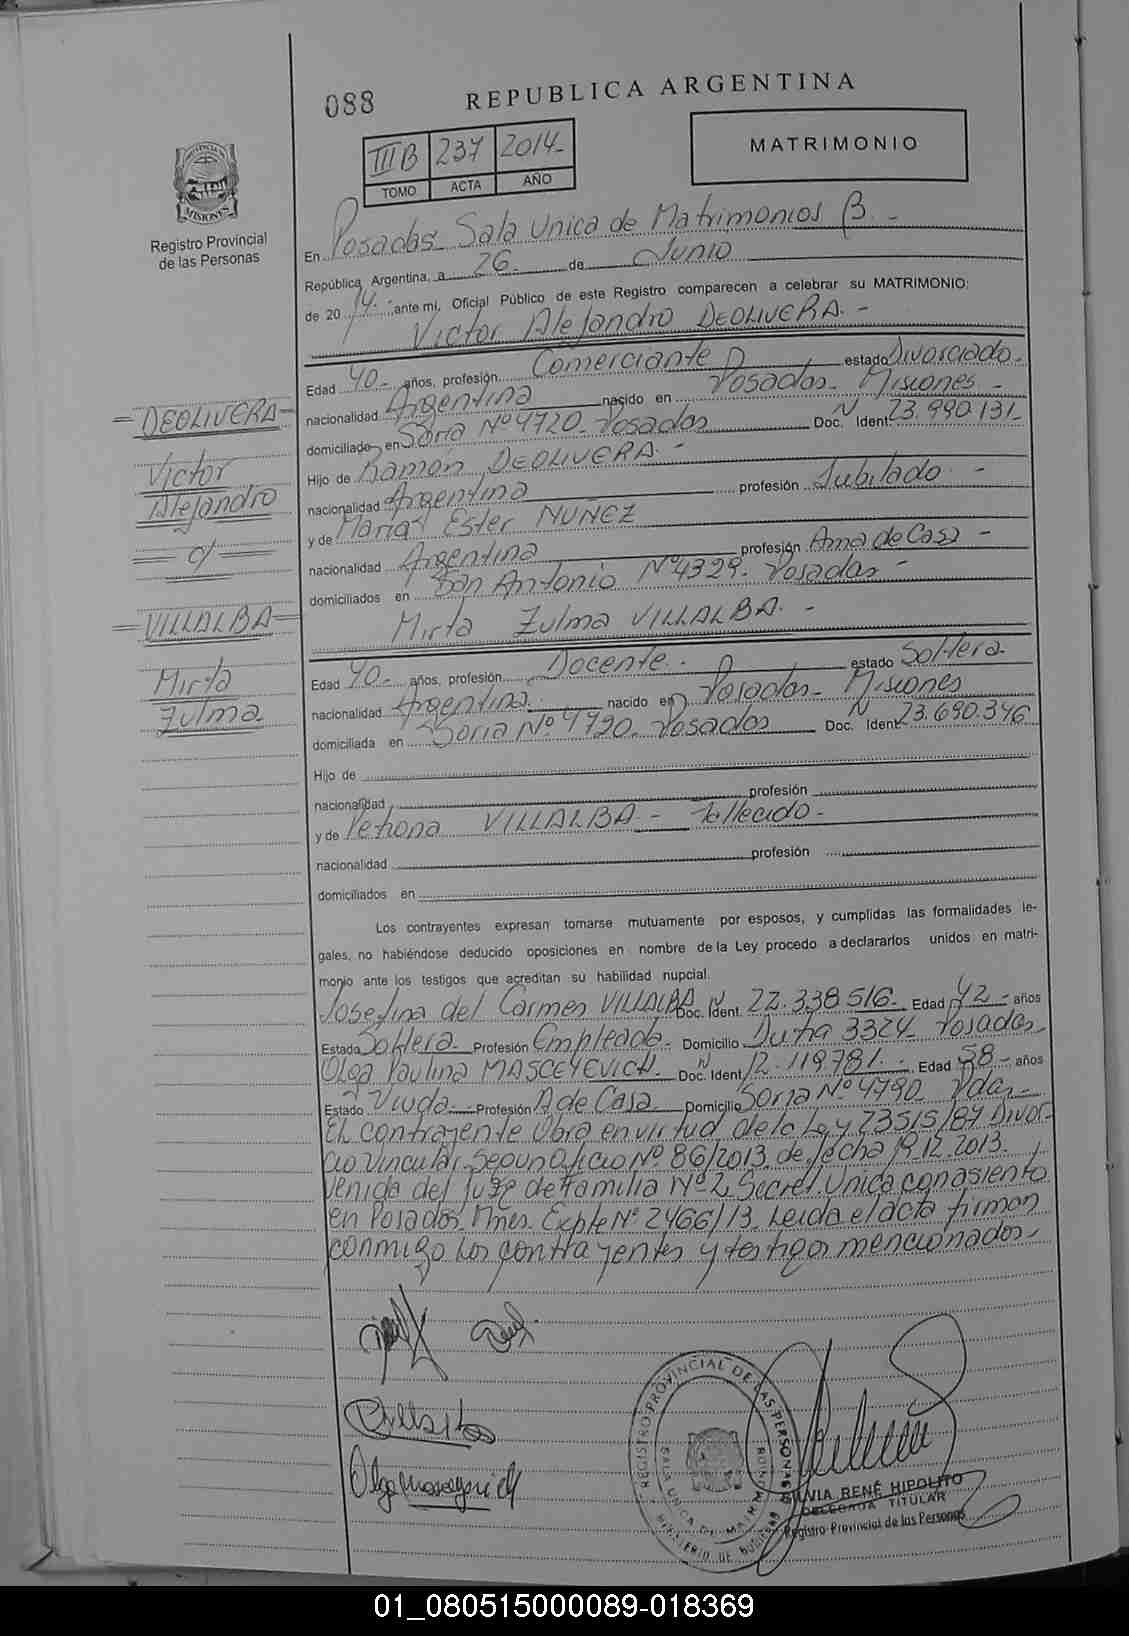 088
REPUBLICA ARGENTINA
IIIB 237 2014-
TOMO ACTA AÑO
MATRIMONIO
PROVINCIA DE
MISIONES
Registro Provincial
de las Personas
En Posadas Sala Unica de Matrimonios B.-
República Argentina, a 26 de Junio
de 2014.- ante mi, Oficial Público de este Registro comparecen a celebrar su MATRIMONIO:
Victor Alejandro DEOLIVERA.-
Edad 40- años, profesión Comerciante estado Divorciado-
nacionalidad Argentina nacido en Posadas- Misiones-
domiciliado en Soria Nº4720- Posadas Doc. N Ident. 23.990.131-
Hijo de Ramón DEOLIVERA.-
nacionalidad Argentina profesión Jubilado.-
y de Maria Ester NUNEZ
nacionalidad Argentina profesión Ama de Casa-
domiciliados en San Antonio Nº4329- Posadas-
Mirta Zulma VILLALBA.-
Edad 40- años, profesión Docente. estado Soltera-
nacionalidad Argentina. nacido en Posadas- Misiones
domiciliada en Soria Nº 4790- Posadas Doc. N Ident. 23.690.346
Hijo de
nacionalidad profesión
y de Petrona VILLALBA- fallecido-
nacionalidad profesión
domiciliados en
= DEOLIVERA=
Victor
Alejandro
= c/ =
=VILLALBA=
Mirta
Zulma
Los contrayentes expresan tomarse mutuamente por esposos, y cumplidas las formalidades le-
gales, no habiéndose deducido oposiciones en nombre de la Ley procedo a declararlos unidos en matri-
monio ante los testigos que acreditan su habilidad nupcial.
Josefina del Carmen VILLALBA Doc. N Ident. 22.338516- Edad 42- años
Estado Soltera- Profesión Empleada- Domicilio 3324- Posadas-
Olga Paulina MASCEYEVICH. Doc. N Ident. 12.119.781.- Edad 58- años
Estado Viuda- Profesión A de Casa Domicilio Soria Nº4790- Pdas-
El contrayente Obra en virtud de la Ley 23515/87 Divor-
cio Vincular, segun Oficio Nº 86/2013, de fecha 19.12.2013.
venida del juzg de Familia Nº2, Secret. Unica con asiento
en Posadas. Mnes. Expte Nº 2466/13. Leida el acta firman
conmigo los contrayentes y testigos mencionados-
REGISTRO PROVINCIAL DE LAS PERSONAS
SALA UNICA DE MATRIMONIOS
SILVIA RENÉ HIPOLITO
DELEGADA TITULAR
Registro Provincial de las Personas
01_080515000089-018369